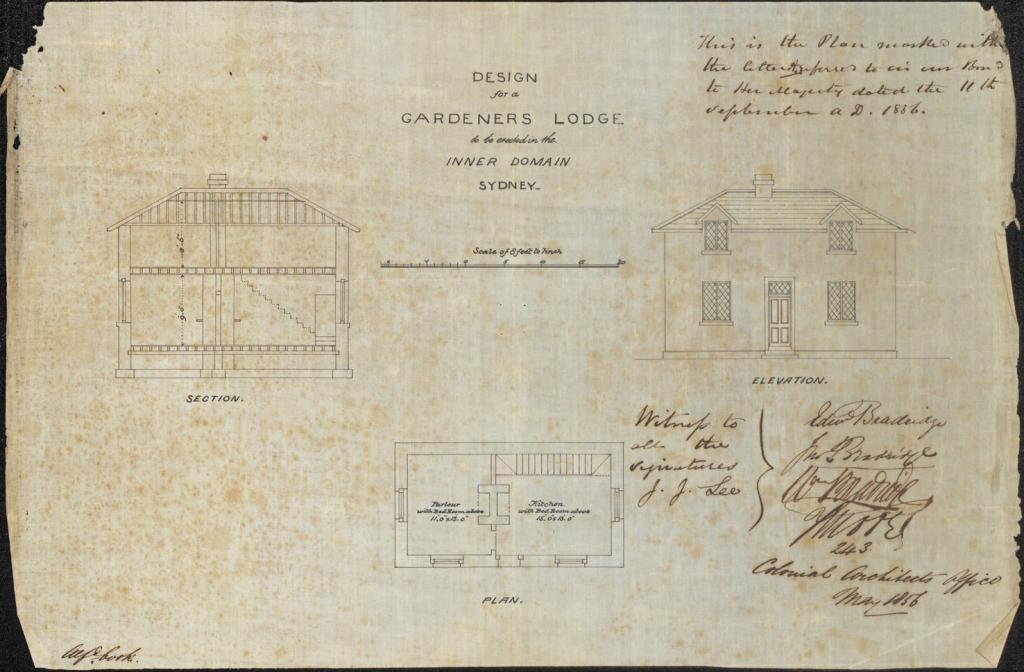 DESIGN
for a
GARDENERS LODGE
to be erected in the
INNER DOMAIN
SYDNEY
This is the Plan marked with
the letter A referred to in our Bond
to Her Majesty dated the 11th
September A.D. 1856.
Scale of 8 feet to 1 inch
SECTION.
ELEVATION.
Parlour
with Bed Room above
11.0 x 13.0
Kitchen
with Bed Room above
15.0 x 13.0
PLAN.
9.0
9.6
Witness to
all the
signatures
J. J. Lee
Edwd Beadridge
Jno Bradridge
Wm Bradridge
Moore
243
Colonial Architects Office
May 1856
book.